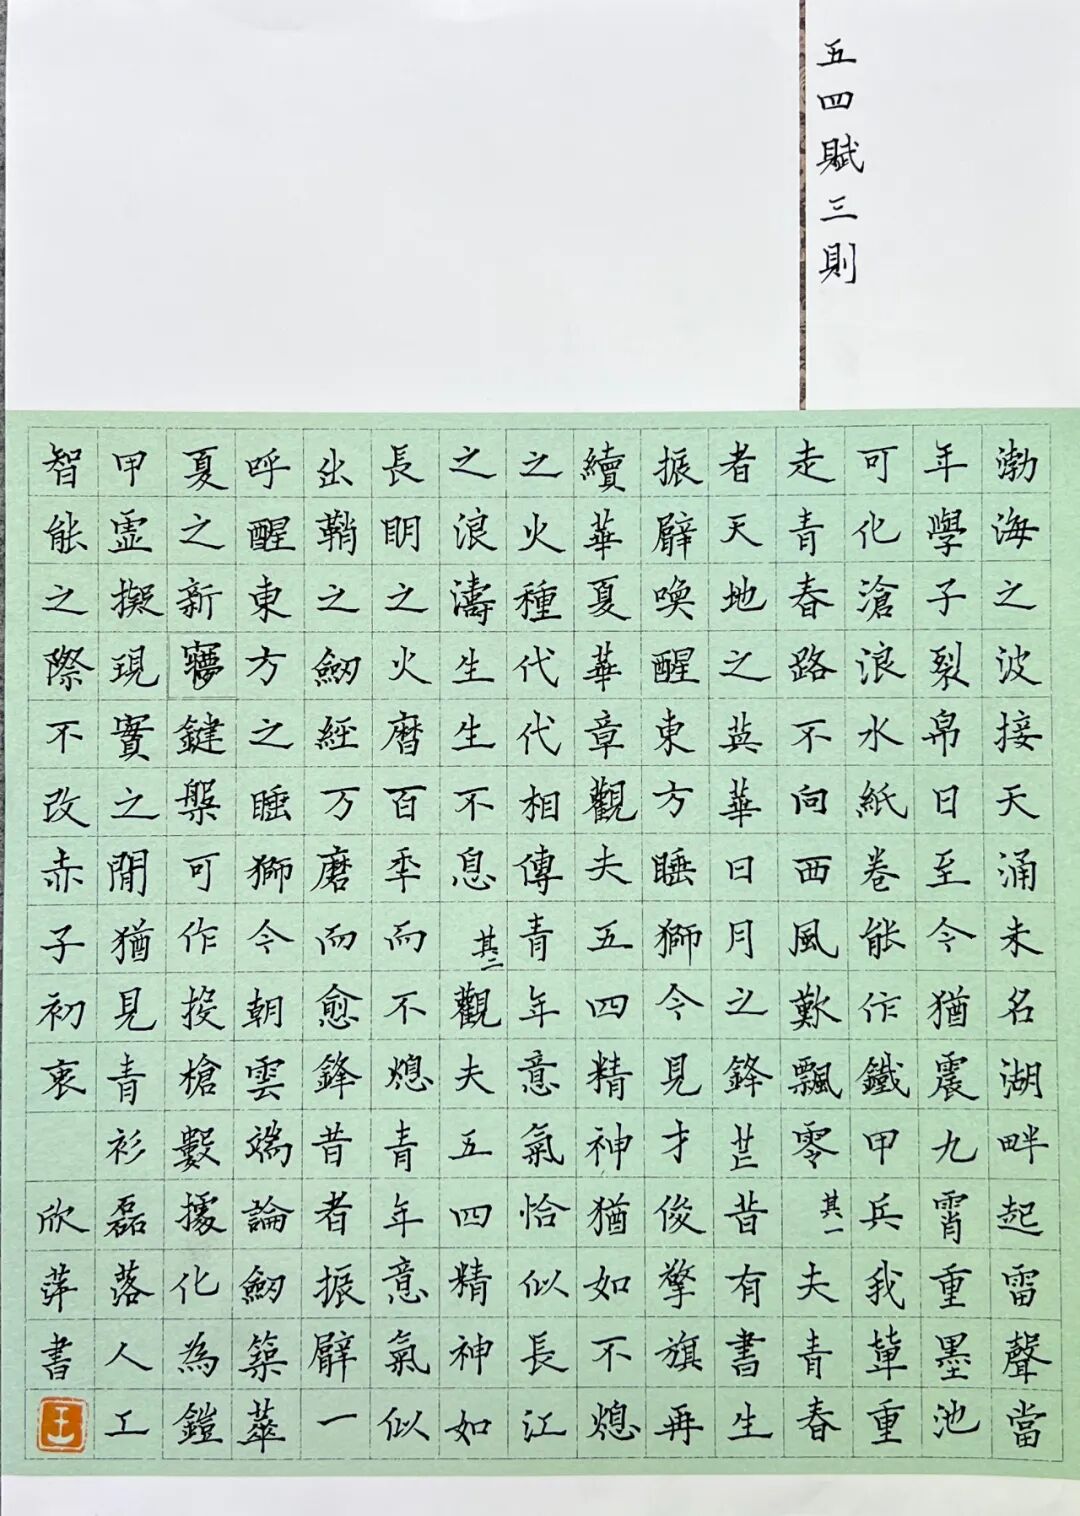 五四賦三則
渤海之波接天涌未名湖畔起雷聲當
年學子裂帛日至今猶震九霄重墨池
可化滄浪水紙卷能作鐵甲兵我輩重
走青春路不向西風歎飄零 其一 夫青春
者天地之英華日月之鋒芒昔有書生
振臂喚醒東方睡獅今見才俊擎旗再
續華夏華章觀夫五四精神猶如不熄
之火種代代相傳青年意氣恰似長江
之浪濤生生不息 其二 觀夫五四精神如
長眀之火曆百秊而不熄青年意氣似
出鞘之劒經万磨而愈鋒昔者振臂一
呼醒東方之睡獅今朝雲端論劒築華
夏之新夢鍵槃可作投槍數據化為鎧
甲虛擬現實之間猶見青衫磊落人工
智能之際不改赤子初衷 欣萍書
王